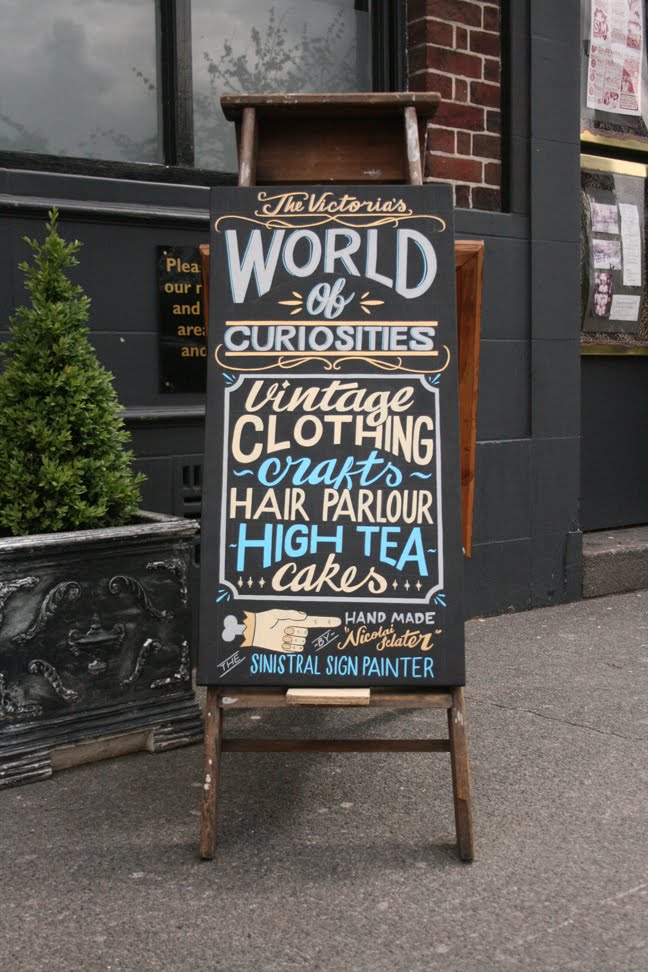 The Victoria's
WORLD
of
CURIOSITIES
Vintage
CLOTHING
~ crafts ~
HAIR PARLOUR
~HIGH TEA~
cakes
HAND MADE
-BY- "Nicolai Sclater"
THE SINISTRAL SIGN PAINTER
Plea
our
and
area
and